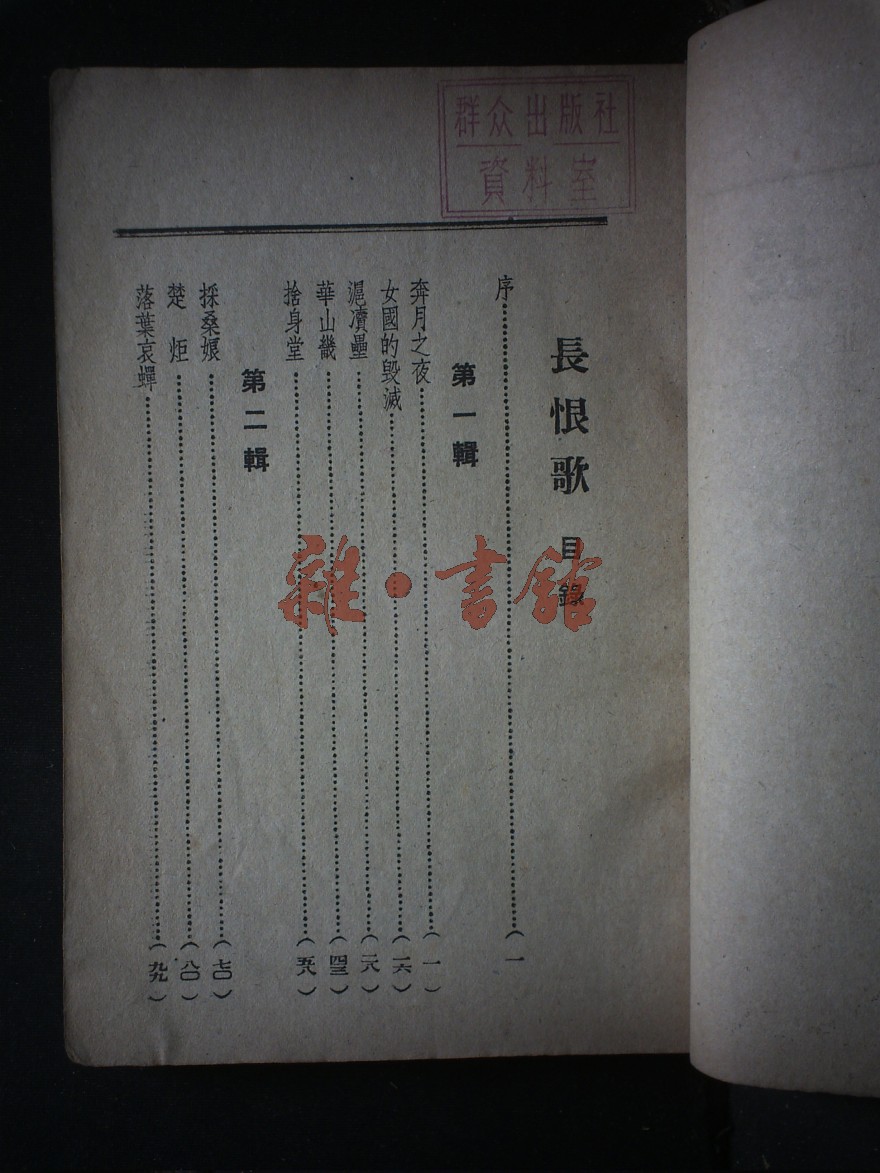 群众出版社
資料室
長恨歌 目錄
序……(一
第一輯
奔月之夜……(一)
女國的毀滅……(一六)
滬凟壘……(二八)
華山畿……(四三)
捨身堂……(五八)
第二輯
採桑娘……(七〇)
楚炬……(八〇)
落葉哀蟬……(九九)
雜·書館